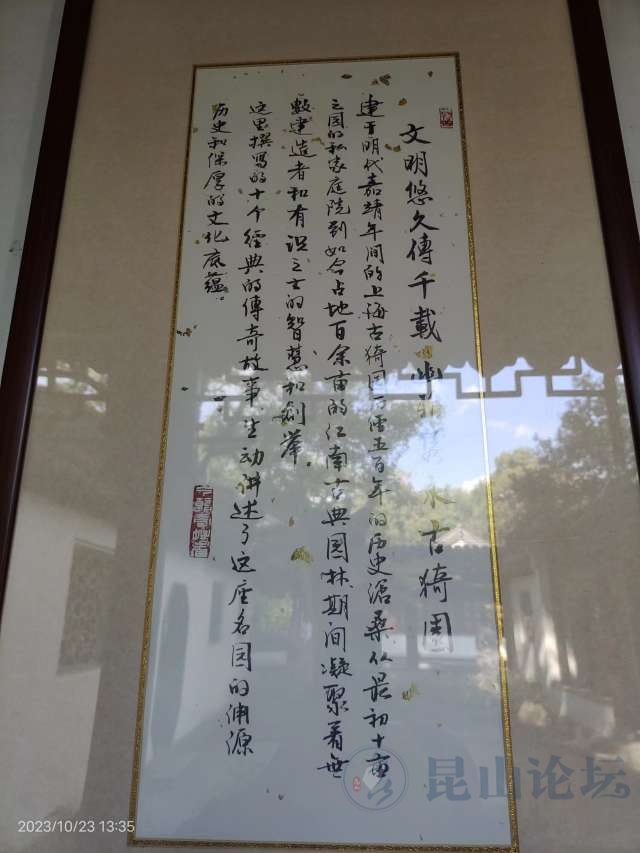 文明悠久傳千載 水古猗園
建于明代嘉靖年间的上海古猗园五百年的历史滄桑从最初十亩
之园的私家庭院到如今占地百余亩的江南古典园林期间凝聚着无
數建造者和有识之士的智慧和创举。
这里撰写的十个經典的傳奇故事生动讲述了这座名园的渊源
历史和深厚的文化底蕴。
昆山论坛
2023/10/23 13:35